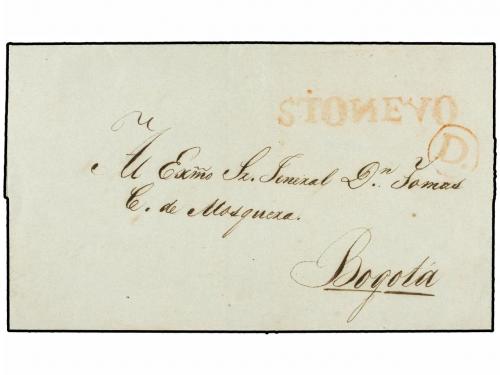 STONEVO
D.
Al Exmo Sr. Jeneral Dn. Tomas
C. de Mosquera.
Bogotá